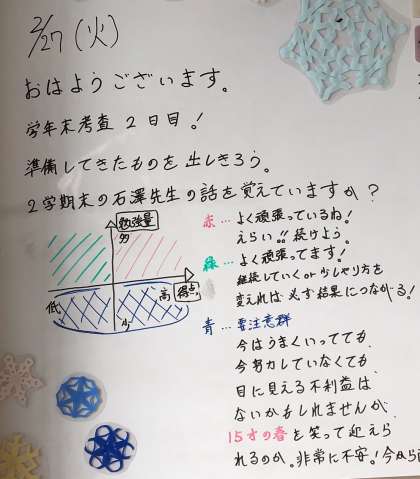 2/27(火)
おはようございます。
学年末考査 2日目!
準備してきたものを出しきろう。
2学期末の石澤先生の話を覚えていますか?
勉強量
多
低
高
得点
少
赤…よく頑張っているね!
えらい!! 続けよう。
緑…よく頑張ってます!
継続していくor少しやり方を
変えれば必ず結果につながる!
青…要注意群
今はうまくいってても、
今努力していなくても
目に見える不利益は
ないかもしれませんが、
15才の春を笑って迎えら
れるのか。非常に不安!今から